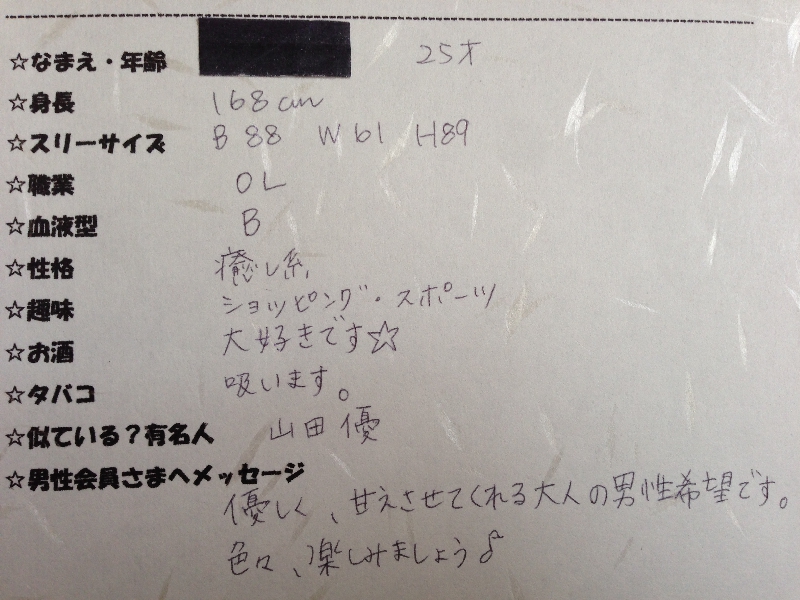 ☆なまえ・年齢 25才
☆身長 168cm
☆スリーサイズ B 88 W 61 H89
☆職業 OL
☆血液型 B
☆性格 癒し系
☆趣味 ショッピング・スポーツ
☆お酒 大好きです☆
☆タバコ 吸います。
☆似ている?有名人 山田優
☆男性会員さまへメッセージ
優しく、甘えさせてくれる大人の男性希望です。
色々、楽しみましょう♪